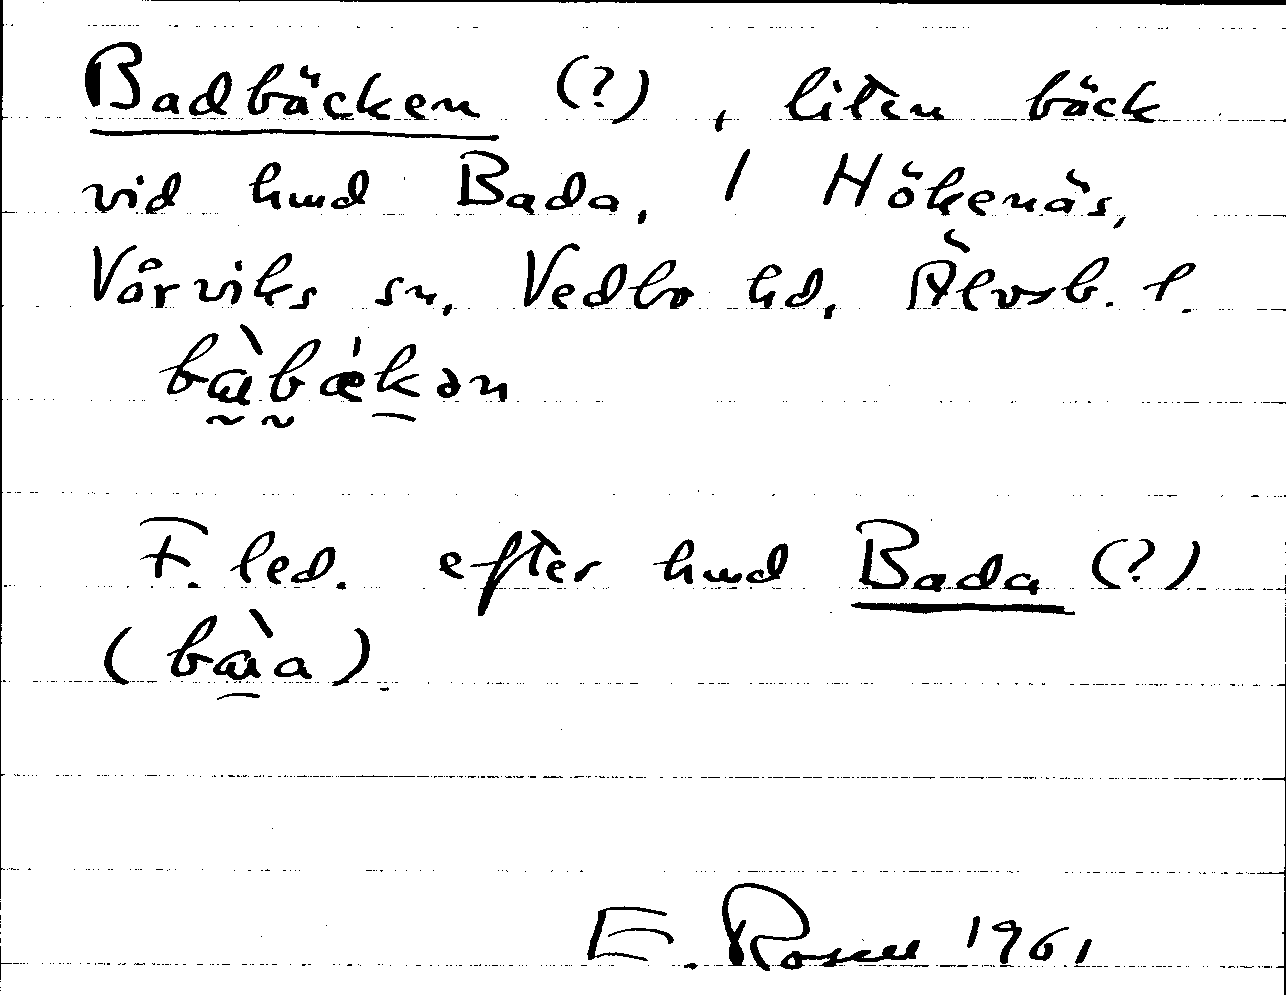 Badbäcken (?), liten bäck
vid hmd Bada, 1 Hökenäs,
Vårviks sn, Vedbo hd, Älvsb. l.
bàbækən
F. led. efter hmd Bada (?)
(bàa).
E. Rosell 1961